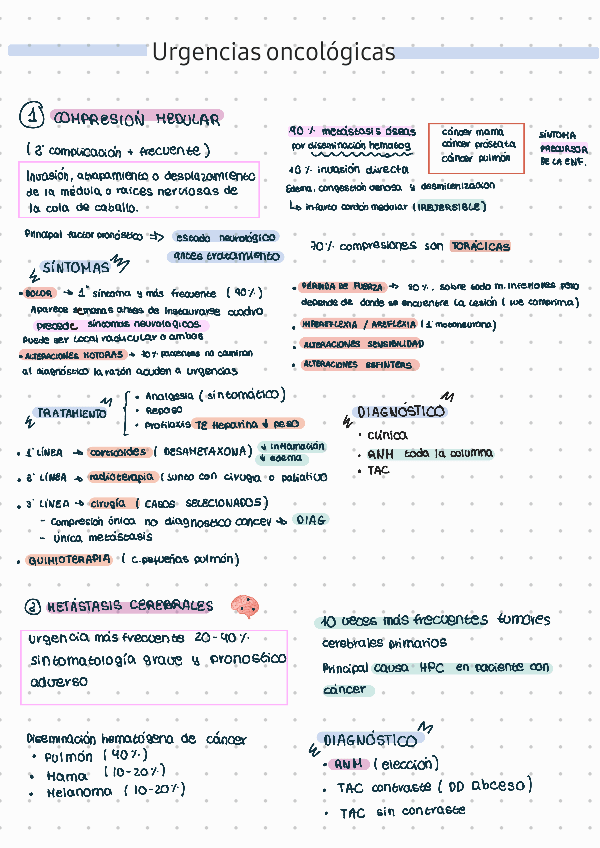 Urgencias oncológicas
1 COMPRESIÓN MEDULAR
(2ª complicación + frecuente)
Invasión, atrapamiento o desplazamiento
de la médula o raíces nerviosas de
la cola de caballo.
Principal factor pronóstico => estado neurológico
antes tratamiento
90% metástasis óseas
por diseminación hematog
10% invasión directa
Edema, congestión venosa y desmielinización
↳ infarto cordón medular (IRREVERSIBLE)
cáncer mama
cáncer próstata
cáncer pulmón
SÍNTOMA
PRECURSOR
DE LA ENF.
70% compresiones son TORÁCICAS
SÍNTOMAS
• DOLOR → 1º síntoma y más frecuente (90%)
Aparece semanas antes de instaurarse cuadro
precede síntomas neurológicos
Puede ser local radicular o ambos
• ALTERACIONES MOTORAS → 70% pacientes no caminan
al diagnóstico la razón acuden a urgencias
• PÉRDIDA DE FUERZA → 80%, sobre todo m. inferiores pero
depende de donde se encuentre la lesión (que comprima)
• HIPERREFLEXIA / AREFLEXIA (1ª motoneurona)
• ALTERACIONES SENSIBILIDAD
• ALTERACIONES ESFÍNTERS
TRATAMIENTO
• Analgesia (sintomático)
• Reposo
• Profilaxis TE Heparina ↓ peso
• 1ª LÍNEA → corticoides (DEXAMETAXONA) ↓ inflamación
↓ edema
• 2ª LÍNEA → radioterapia (junto con cirugía o paliativo
• 3ª LÍNEA → cirugía (CASOS SELECIONADOS)
- Compresión única no diagnostico cancer → DIAG
- Única metástasis
• QUIMIOTERAPIA (c. pequeñas pulmón)
DIAGNÓSTICO
• clínica
• RNM toda la columna
• TAC
2 METÁSTASIS CEREBRALES
urgencia más frecuente 20-40%
sintomatología grave y pronostico
adverso
10 veces más frecuentes tumores
cerebrales primarios
Principal causa HPC en paciente con
cáncer
Diseminación hematógena de cáncer
• Pulmón (40%)
• Mama (10-20%)
• Melanoma (10-20%)
DIAGNÓSTICO
• RNM (elección)
• TAC contraste (DD abceso)
• TAC sin contraste